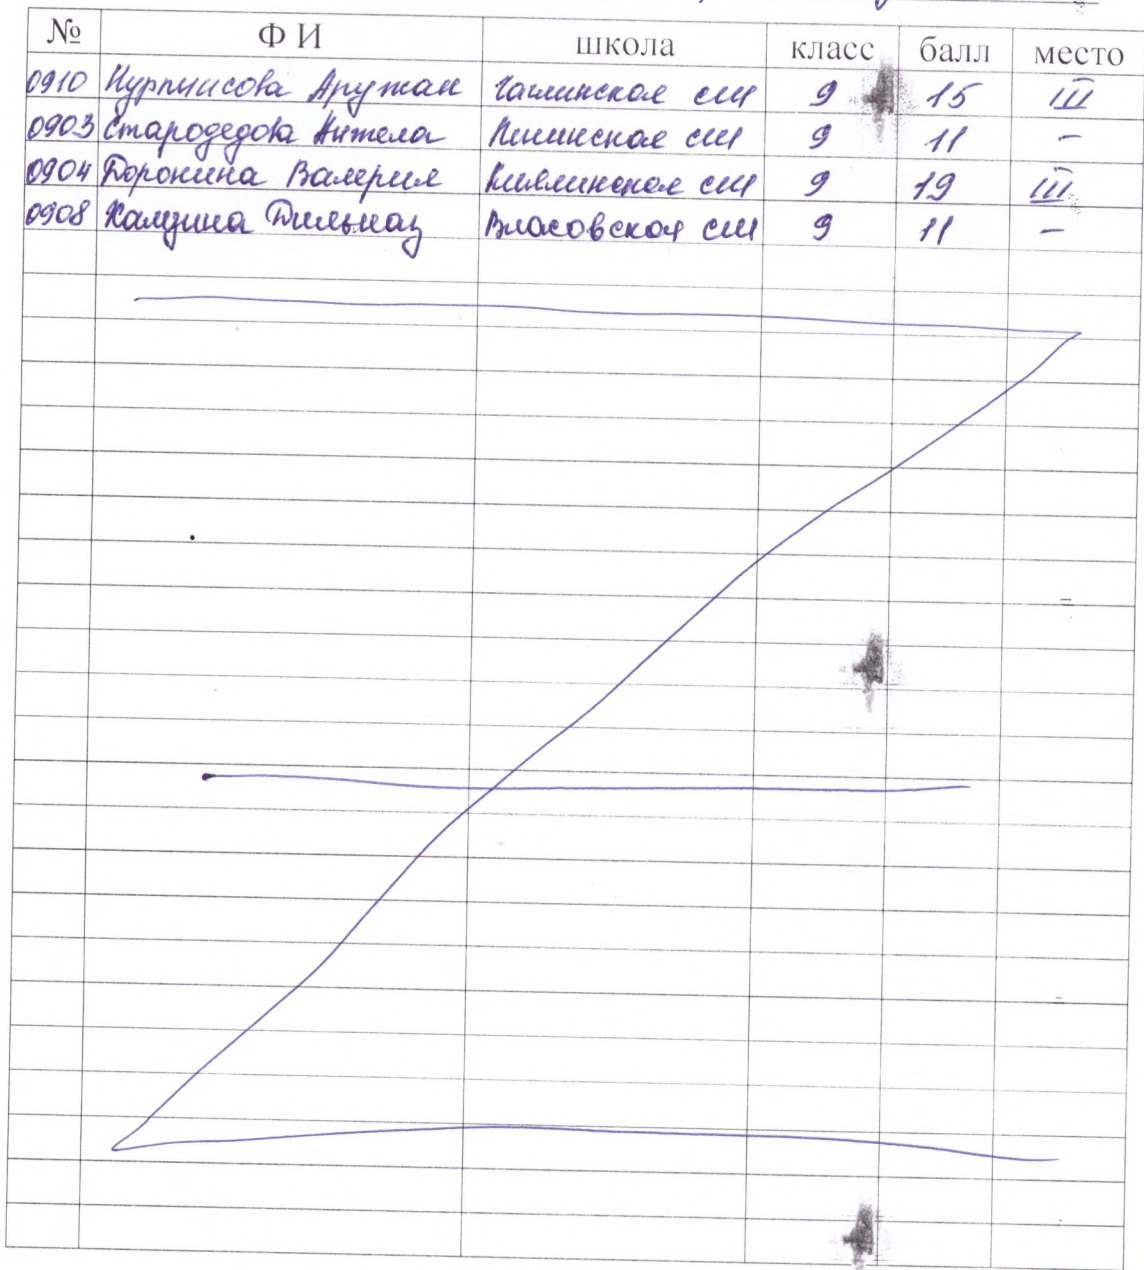 № Ф И школа класс балл место
0910 Нурпиисова Аружан Чаглинская сш 9 15 III
0903 Стародедова Анжела сш 9 11 –
0904 Доронина Валерия сш 9 19 III
0908 Халуина Дильназ Власовская сш 9 11 –